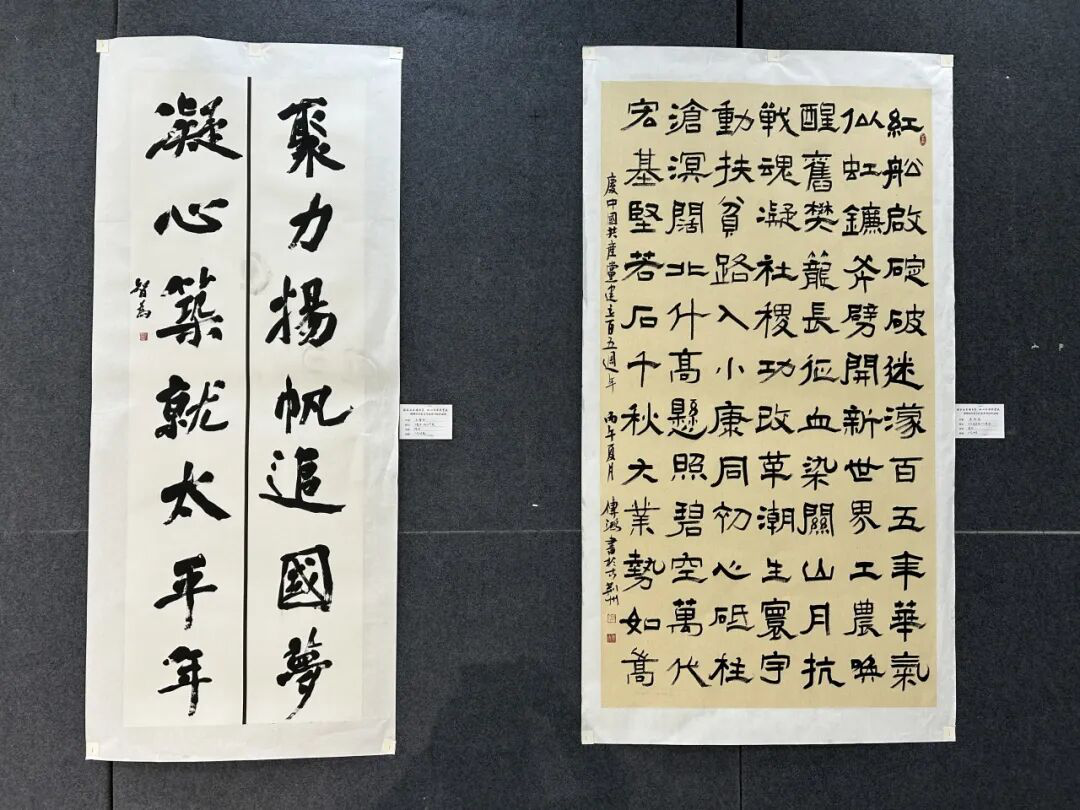 聚力揚帆追國夢
凝心築就太平年
紅船啟碇破迷濛百五年華氣
似虹鐮斧劈開新世界工農喚
醒舊樊籠長征血染關山月抗
戰魂凝社稷功改革潮生寰宇
動扶貧路入小康同初心砥柱
滄溟闊北斗高懸照碧空萬代
宏基堅若石千秋大業勢如嵩
慶中國共產黨建立百五週年 丙午夏月 傳鴻書於古荊州